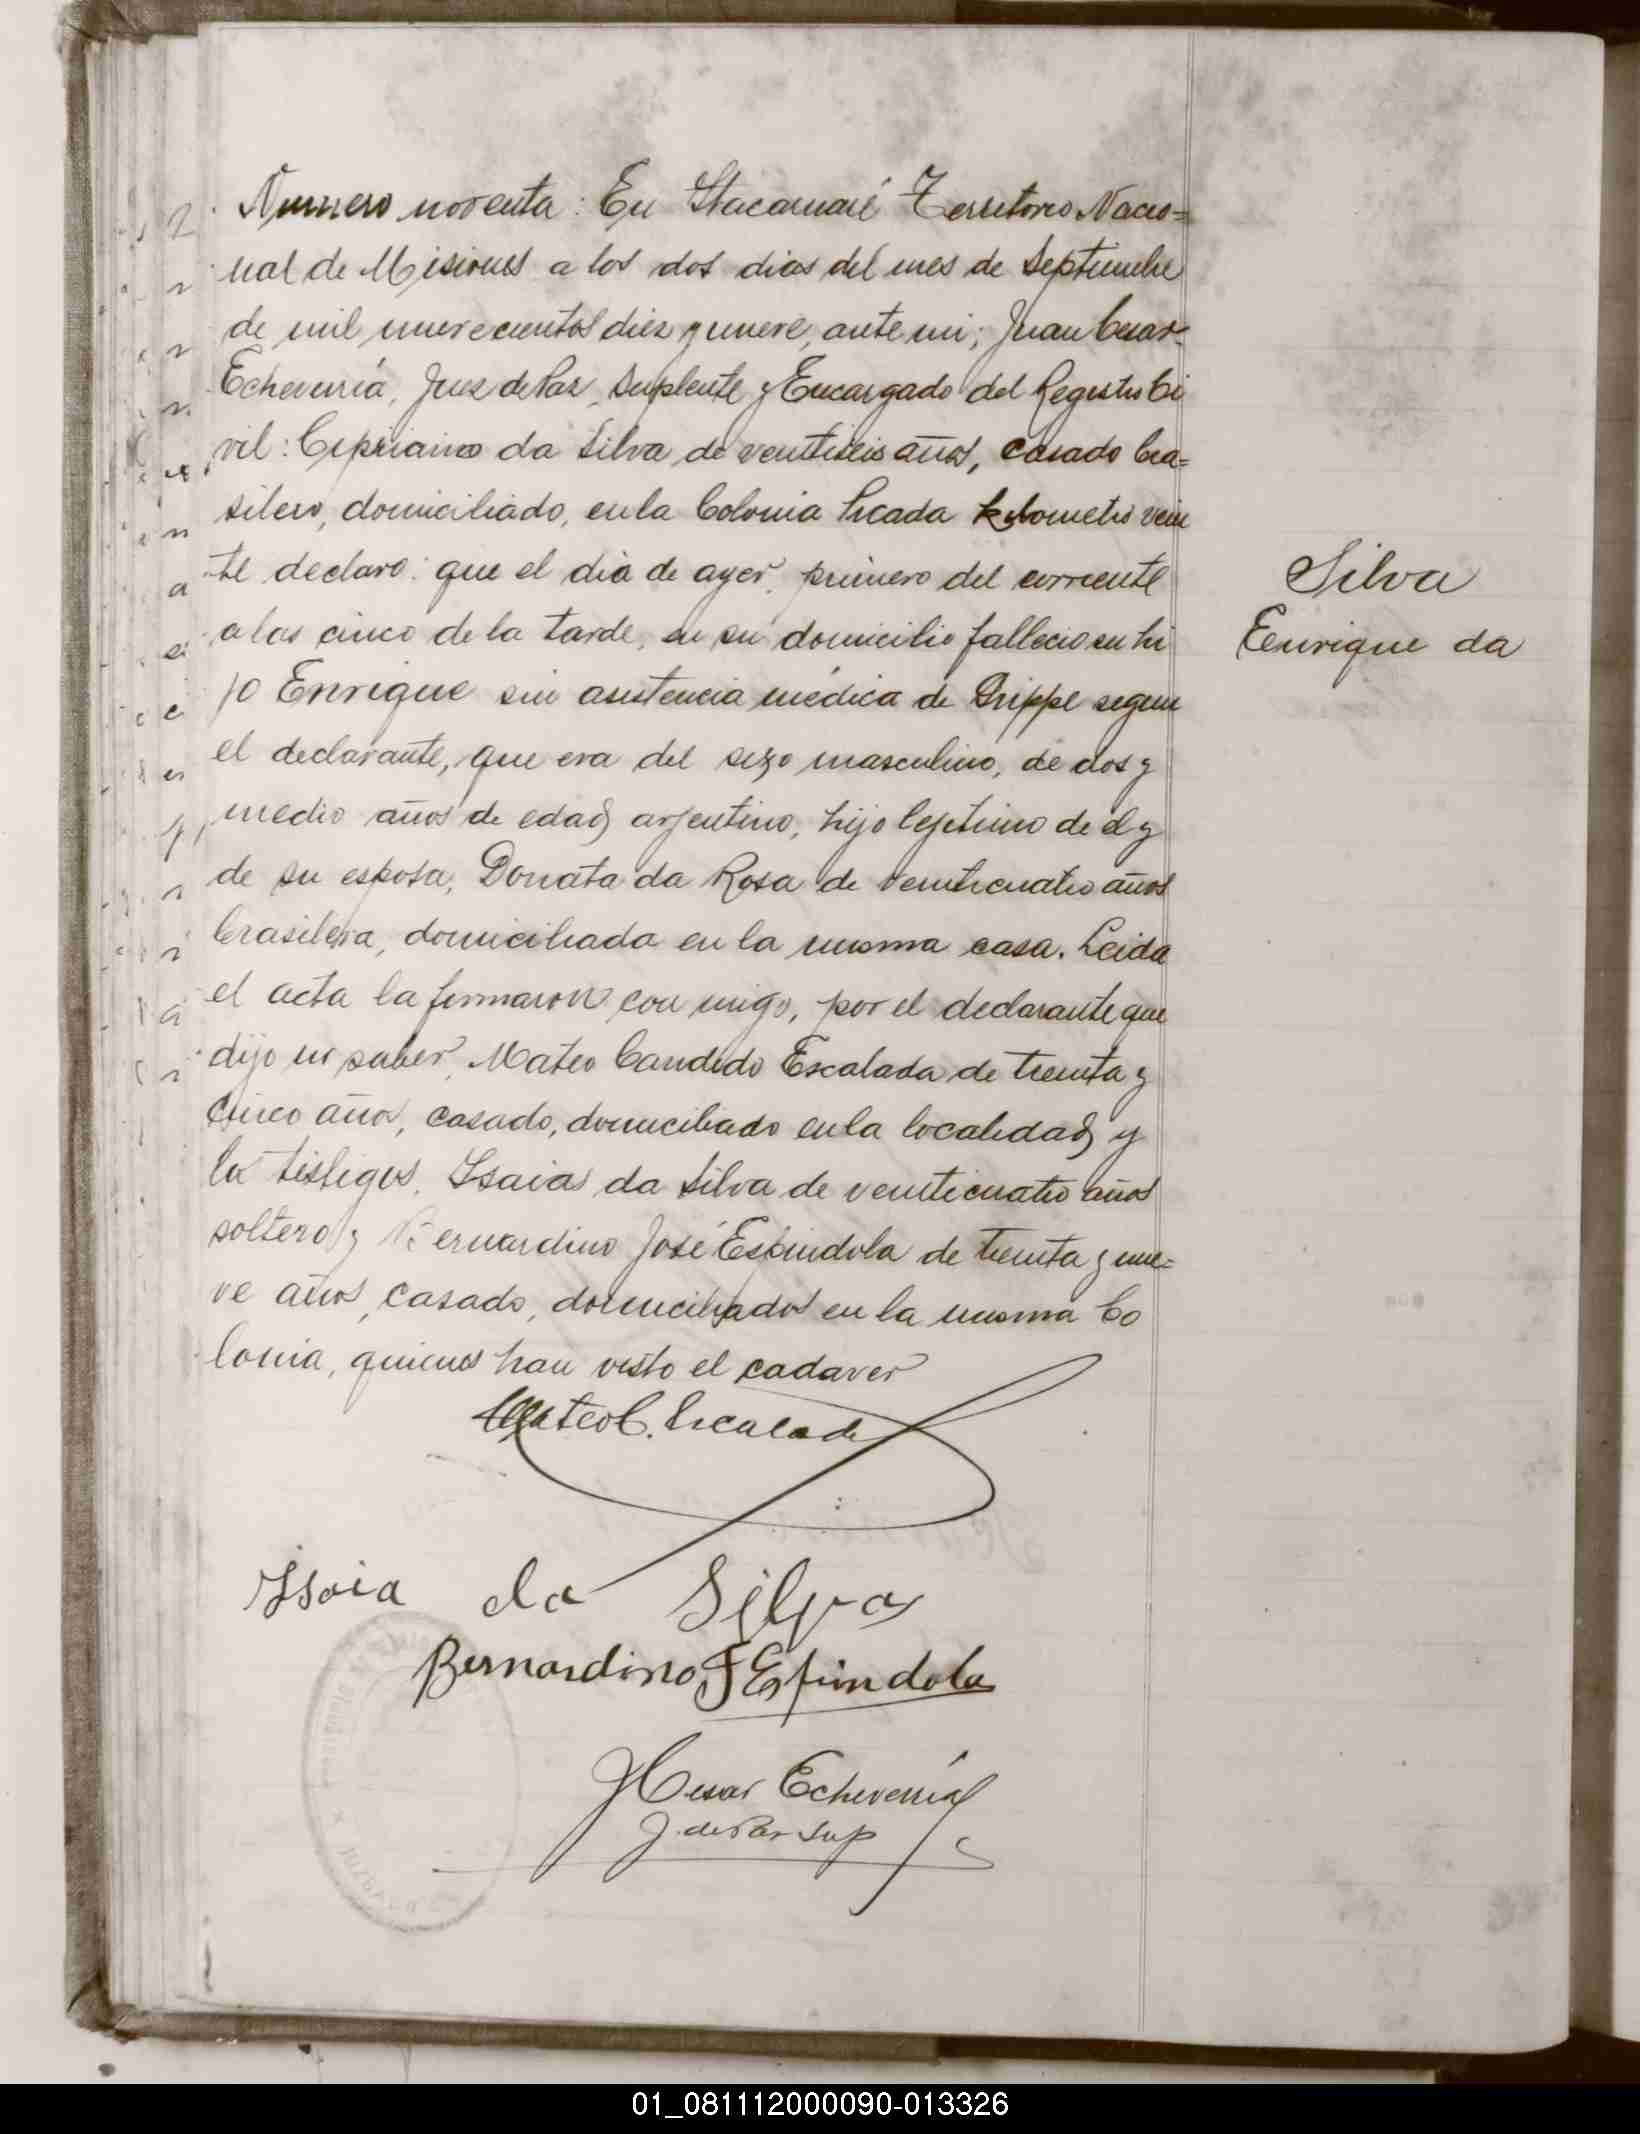 Numero noventa: En Itacaruaré Territorio Nacio=
nal de Misiones a los dos dias del mes de Septiembre
de mil nuevecientos diez y nueve, ante mi, Juan Cesar
Echeverría, Juez de Paz, Suplente y Encargado del Registro Ci
vil: Cipriano da Silva de ventiseis años, casado bra=
silero, domiciliado, en la Colonia Picada kilometro vein
te declaro: que el dia de ayer, primero del corriente
a las cinco de la tarde, en su domicilio fallecio su hi
jo Enrique sin asistencia médica de Grippe segun
el declarante, que era del sexo masculino, de dos y
medio años de edad, argentino, hijo lejetimo de el y
de su esposa, Donata da Rosa de venticuatro años
brasilera, domiciliada en la misma casa. Leida
el acta la firmaron con migo, por el declarante que
dijo no saber, Mateo Candido Escalada de treinta y
cinco años, casado, domiciliado en la localidad y
los testigos, Isaias da Silva de venticuatro años
soltero y Bernardino José Espindola de treinta y nue=
ve años, casado, domiciliados en la misma Co
lonia, quienes han visto el cadaver
Silva
Enrique da
Mateo C. Escalada
Isaia da Silva
Bernardino J Espindola
J Cesar Echeverría
J. de Paz Sup
01_081112000090-013326